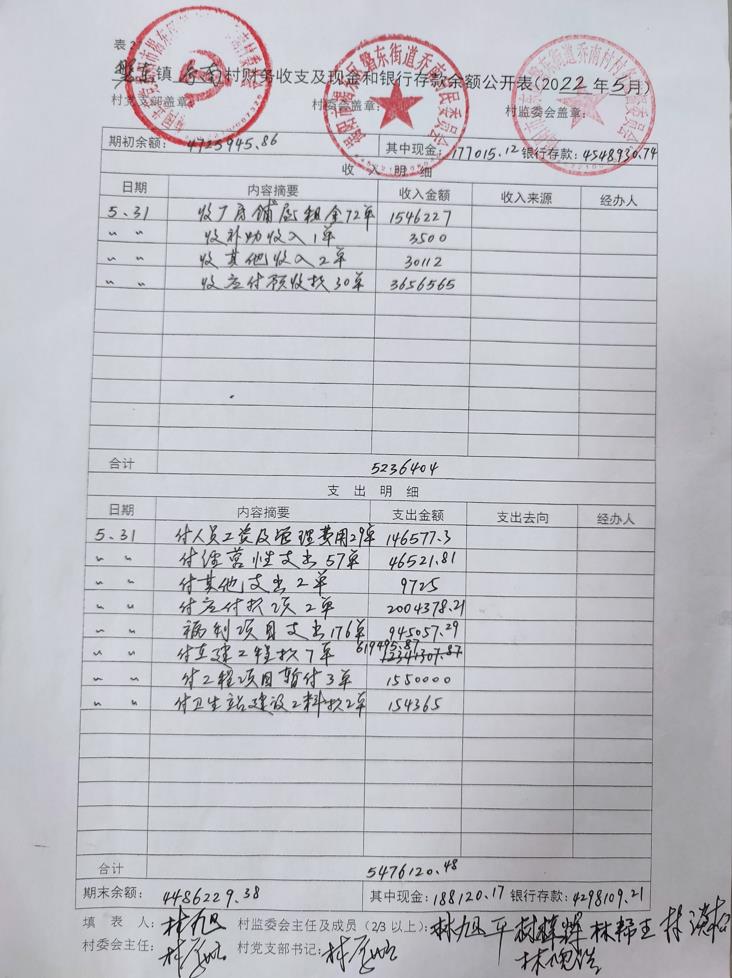 表2
磐东镇乔南村财务收支及现金和银行存款余额公开表(2022年5月)
村党支部盖章: 村委会盖章: 村监委会盖章:
期初余额: 4725945.86 其中现金: 177015.12 银行存款: 4548930.74
收 入 明 细
日期 内容摘要 收入金额 收入来源 经办人
5.31 收厂房铺屋租金72单 1546227
〃 〃 收补助收入1单 3500
〃 〃 收其他收入2单 30112
〃 〃 收应付预收款30单 3656565
合计 5236404
支 出 明 细
日期 内容摘要 支出金额 支出去向 经办人
5.31 付人员工资及管理费用29单 146577.3
〃 〃 付经营性支出57单 46521.81
〃 〃 付其他支出2单 9725
〃 〃 付应付款项2单 2004378.21
〃 〃 福利项目支出176单 945057.29
〃 〃 付在建工程款7单 619495.87
〃 〃 付工程项目暂付3单 1550000
〃 〃 付卫生站建设工料款2单 154365
合计 5476120.48
期末余额: 4486229.38 其中现金: 188120.17 银行存款: 4298109.21
填 表 人: 林旭 村监委会主任及成员(2/3以上): 林旭平
村委会主任: 村党支部书记: